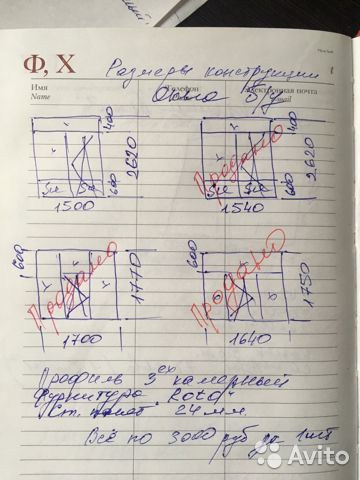 Ф, Х
Размеры конструкции
Имя
Name
Телефон
Электронная почта
E-mail
Окна Б/у
400
2620
600
1500
Продано
400
2620
600
1540
600
Продано
1770
1700
600
Продано
1750
1640
Профиль 3ех камерный
Фурнитура "Roto"
Ст. пакет 24 мм.
Всё по 3000 руб за 1шт
Avito